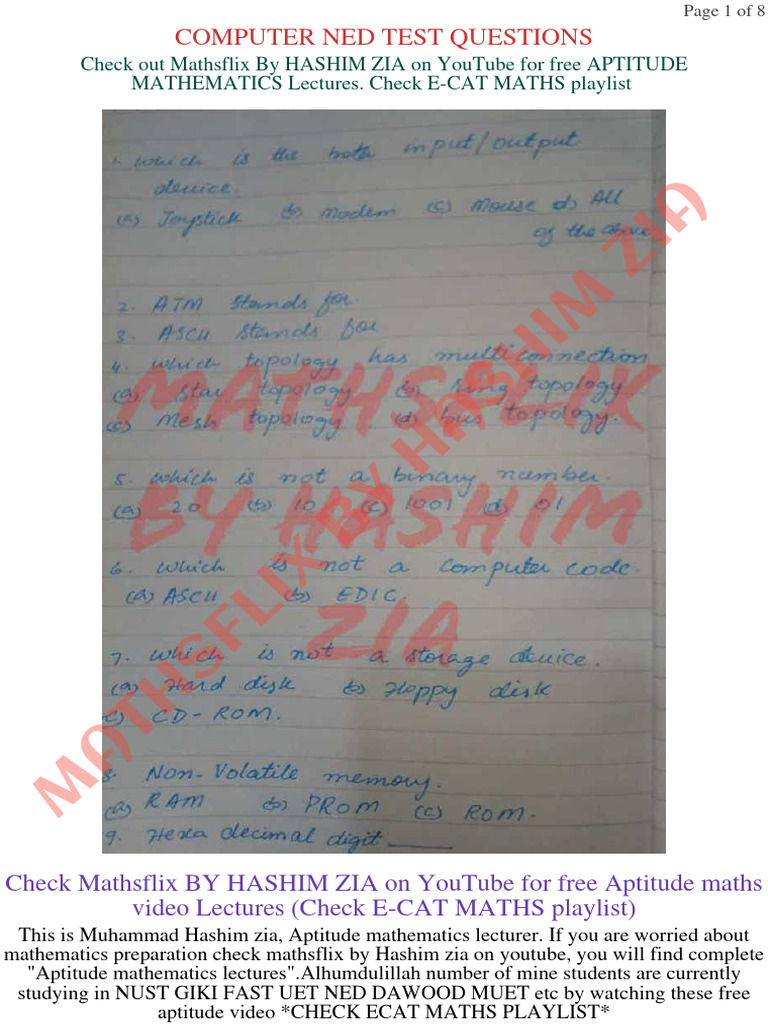 Page 1 of 8
COMPUTER NED TEST QUESTIONS
Check out Mathsflix By HASHIM ZIA on YouTube for free APTITUDE
MATHEMATICS Lectures. Check E-CAT MATHS playlist
1. Which is the both input/output
device.
(a) Joystick (b) Modem (c) Mouse d) All
of the above
2. ATM stands for.
3. ASCII stands for
4. which topology has multi connection
(a) Star topology (b) ring topology.
(c) Mesh topology (d) bus topology.
5. which is not a binary number.
(a) 20 (b) 10 (c) 1001 d) 01
6. Which is not a computer code.
(a) ASCII (b) EDIC.
7. Which is not a storage device.
(a) Hard disk (b) Floppy disk
(c) CD-ROM.
8. Non-Volatile memory.
(a) RAM (b) PROM (c) ROM.
9. Hexa decimal digit ____
MATHSFLIX
BY HASHIM
ZIA
MATHSFLIX BY HASHIM ZIA
Check Mathsflix BY HASHIM ZIA on YouTube for free Aptitude maths
video Lectures (Check E-CAT MATHS playlist)
This is Muhammad Hashim zia, Aptitude mathematics lecturer. If you are worried about
mathematics preparation check mathsflix by Hashim zia on youtube, you will find complete
"Aptitude mathematics lectures".Alhumdulillah number of mine students are currently
studying in NUST GIKI FAST UET NED DAWOOD MUET etc by watching these free
aptitude video *CHECK ECAT MATHS PLAYLIST*